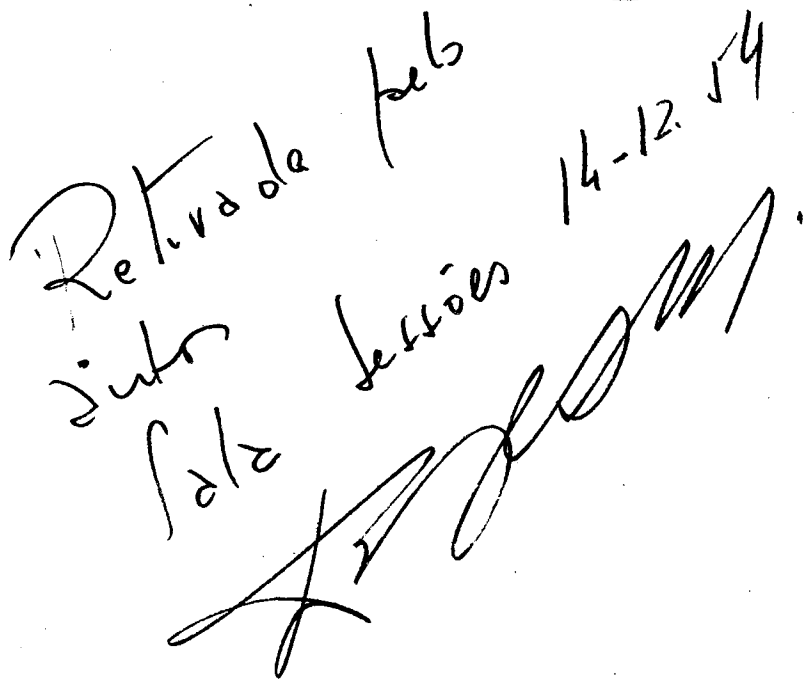 Retirada pelo
autor
Sala Sessões 14-12-54